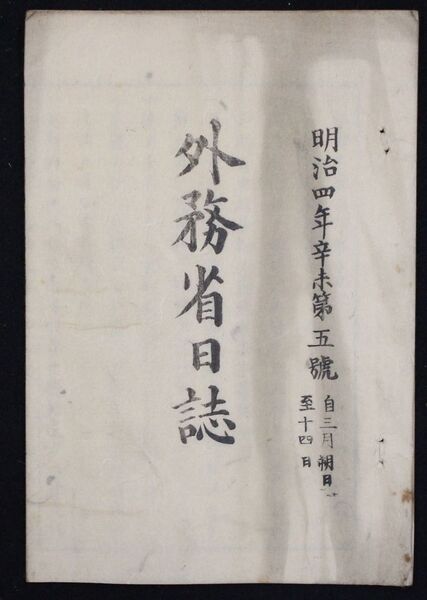 明治四年辛未第五號
自三月朔日
至十四日
外務省日誌